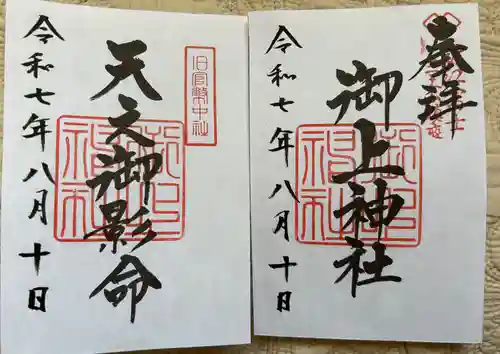 奉拝
御上神社
令和七年八月十日
旧官幣中社
天之御影命
令和七年八月十日
御上神社